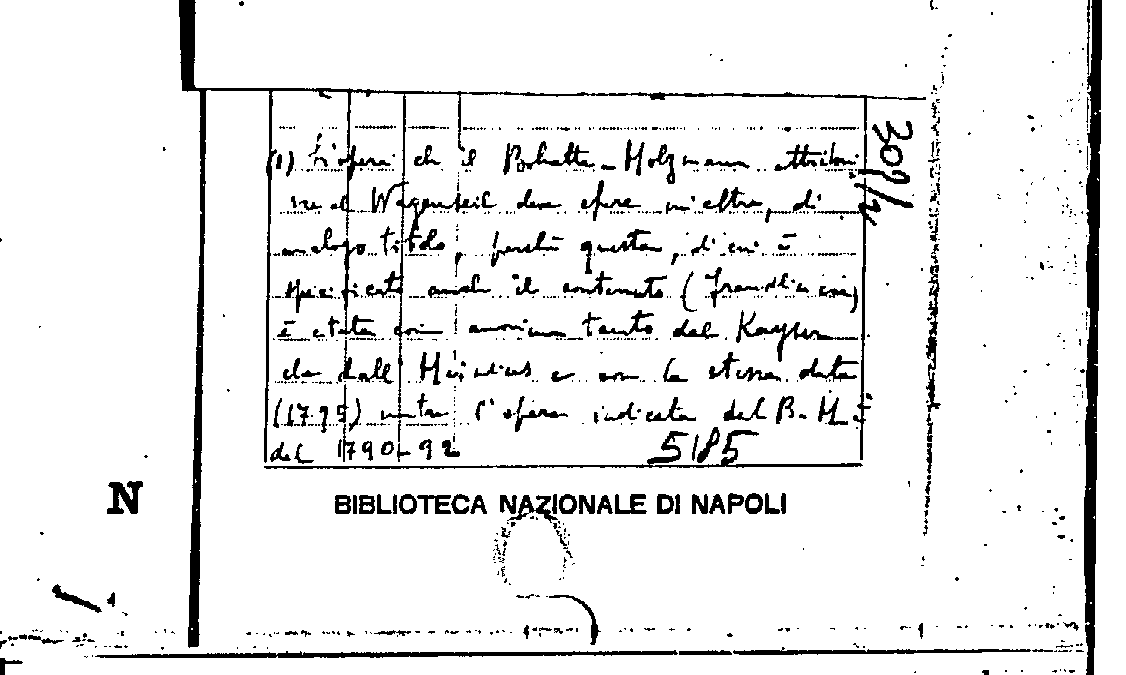 (1) L'opera che il Bohatta-Holzmann attribui
sce al Wagenseil deve essere un'altra, di
analogo titolo, perchè questa, di cui è
specificato anche il contenuto
è citata come anonima tanto dal Kayser
che dall' Heinsius e con la stessa data
(1795) mentre l'opera indicata dal B.-H. è
del 1790-92
5185
309/2
BIBLIOTECA NAZIONALE DI NAPOLI
N